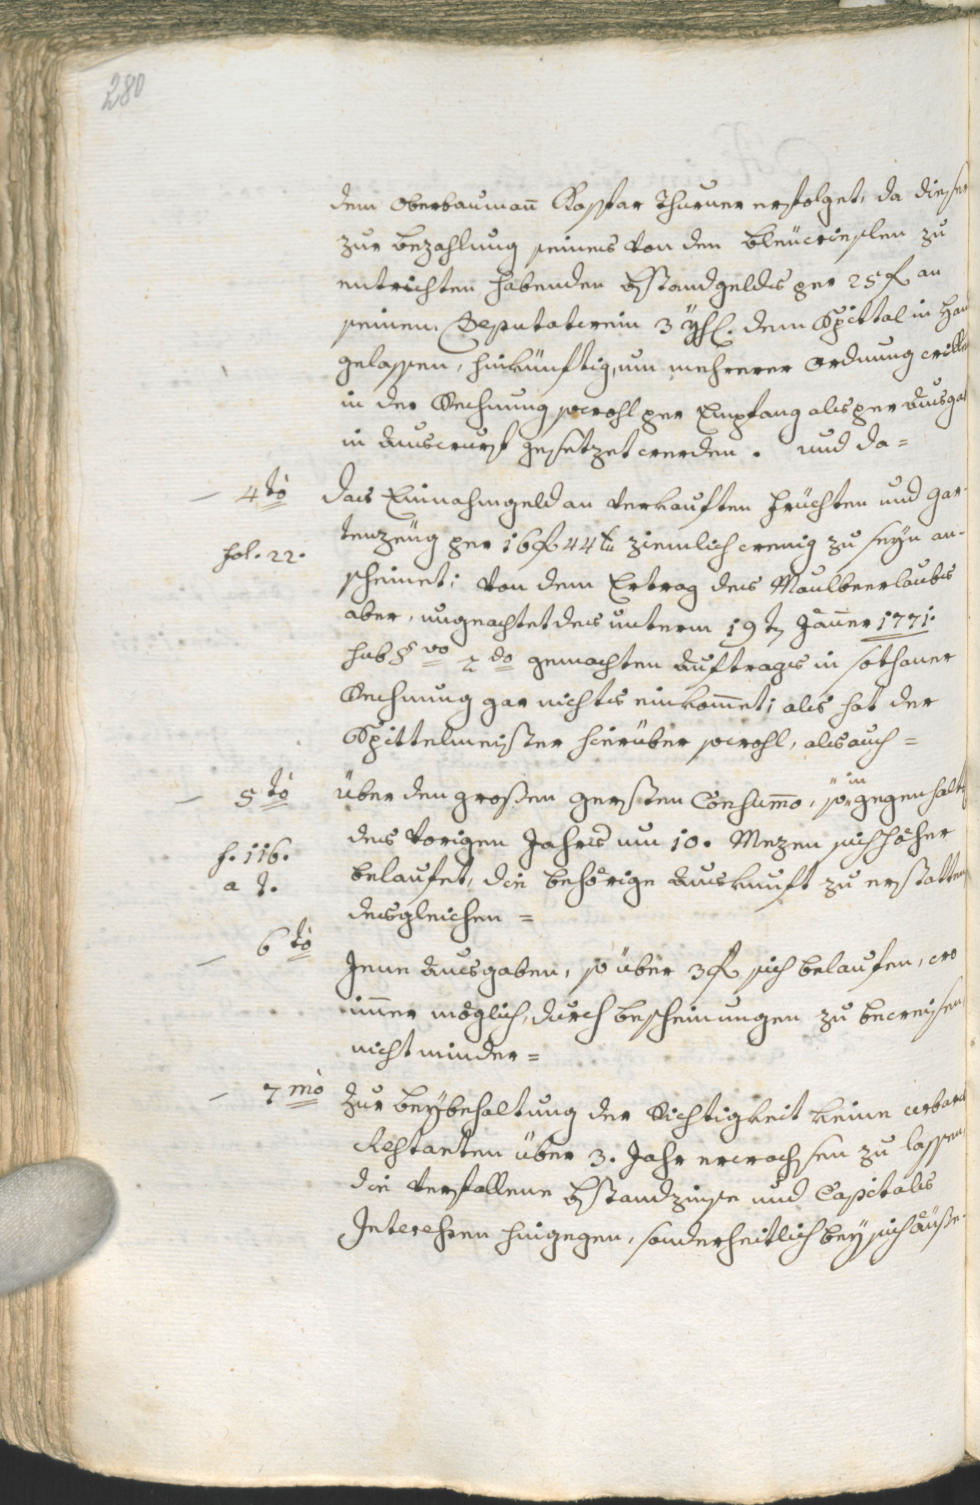 280
dem Oberbaumañ Kaspar Thurner erfolget, da dieser
zur Bezahlung seines von den zu
entrichten habenden Bstandgeldes per 25 f an
seinem Deputatwein 3 Yhl. dem Spittal in Han
gelassen, hinkünftig, um mehrerer Ordnung willen
in der Rechnung sowohl per Empfang als per Ausgab
in Auswurf gesetzet werden. und da=
4tò das Einnahmgeld an verkauften Früchten und Gar-
fol. 22. tenzeüg per 16 f 44 xr ziemlich wenig zu seÿn an-
scheinet; von dem Ertrag des Maulbeerlaubes
aber, ungeachtet des unterm 19t Jäñer 1771.
sub § vo 2do gemachten Auftrages in sothaner
Rechnung gar nichts einkom̃et; als hat der
Spittelmeister hierüber sowohl, als auch=
5tò über den großen Gersten Consum̃o, so in gegenhalt
des vorigen Jahrs um 10. Mezen sich höher
f. 116. belaufet, die behörige Auskunft zu erstatten
a t.
desgleichen=
6tò Jene Ausgaben, so über 3 f sich belaufen, wo
im̃er möglich, durch Bescheinungen zu beweisen
nicht minder=
7mò Zur Beÿbehaltung der Richtigkeit keine urbars
Restanten über 3. Jahr erwachsen zu lassen
die verfallene Bstandzinse und Capitals
Interessen hingegen, sonderheitlich beÿ sich äuße-